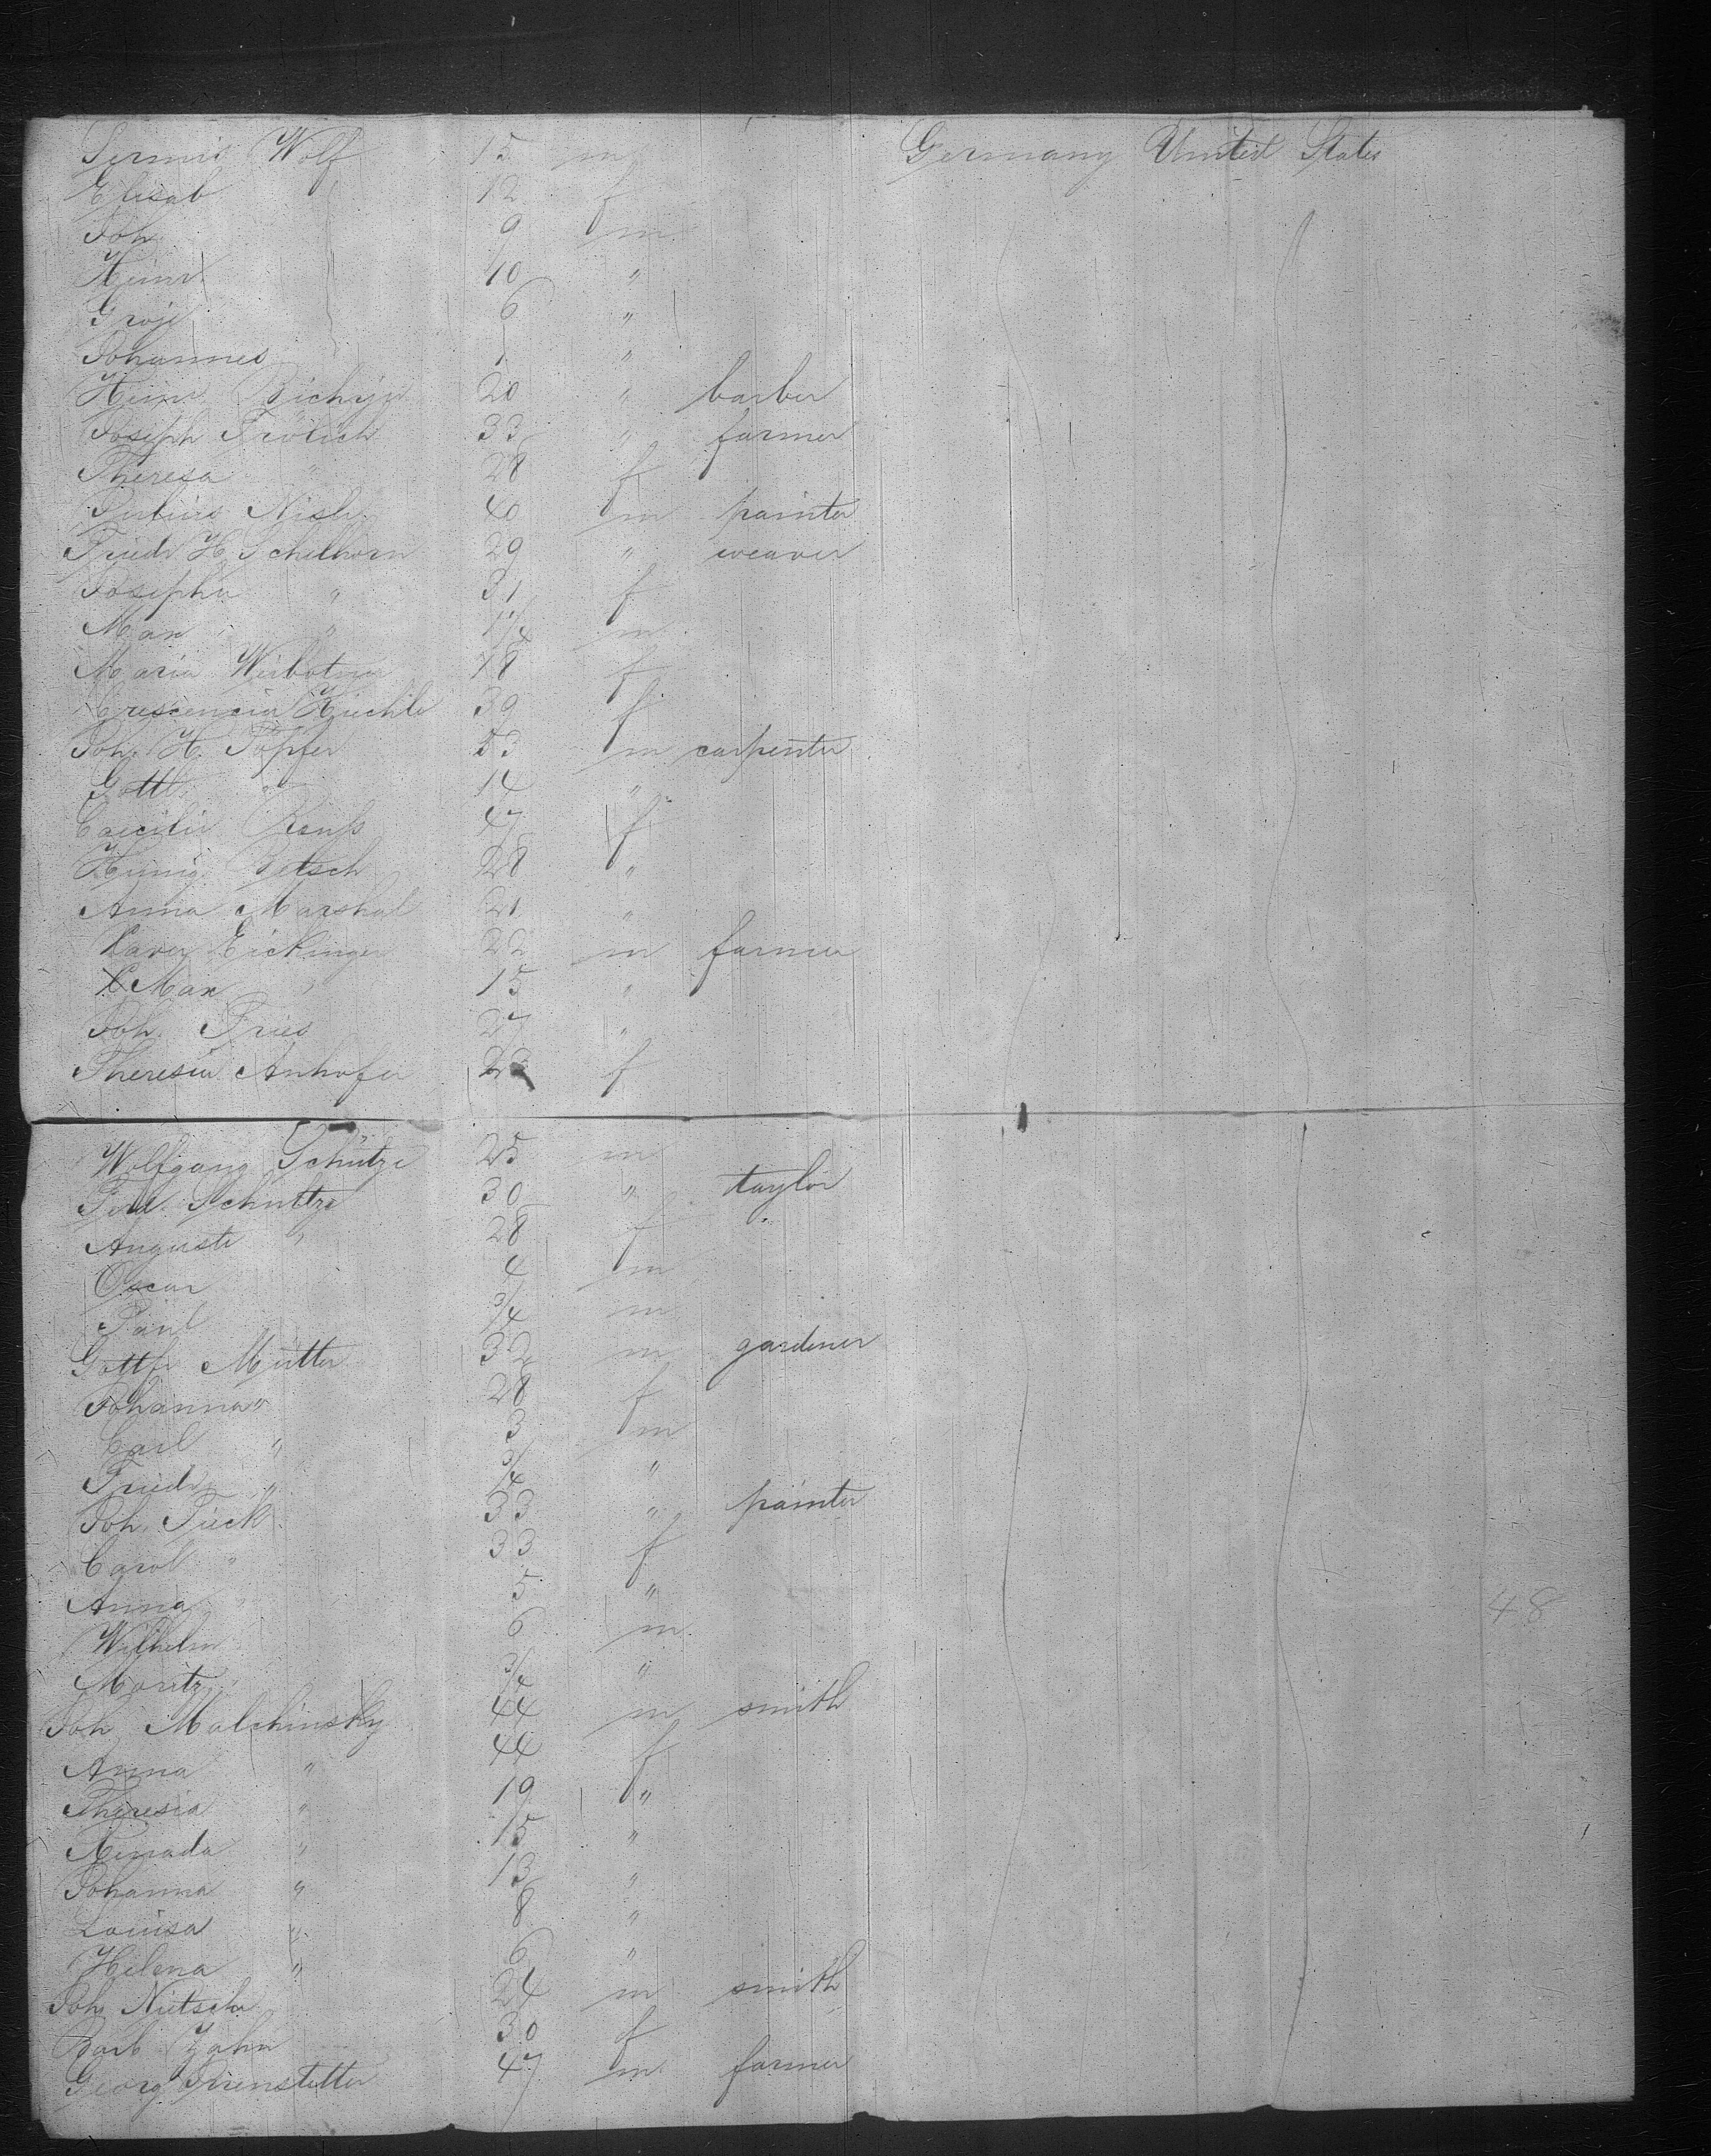 Wolf 15 m Germany United States
Elisab 12 f
Joh 9 m
Heinr. 10 "
6 "
Johannes 1 "
Heinr 20 " barber
Joseph Frölich 33 " farmer
Theresa " 28 f
40 m painter
Friedr H Schellhorn 29 " weaver
Josepha " 31 f
Max " 1 1/4 m
Maria 18 f
Crescencia 39 f
Joh. H. Töpfer 53 m carpenter
Gottl. " 14 "
Caecilie 47 f
28 "
Anna Marshal 21 "
Xaver Eickinger 22 m farmer
X Max " 15 "
Joh. Fries 27 "
Theresia Anhofer f
Wolfgang Schütze 25 m
Ferd. Schultze 30 " taylor
Auguste " 28 f
Oscar 4 m
Paul 3/4 m
Gottfr 32 m gardener
Johanna " 28 f
Carl " 3 m
Friedr " 3/4 "
Joh. 33 " painter
Carol " 33 f
Anna " 5 "
Wilhelm 6 m
48
Moritz 3/4 "
Joh Malchinsky 44 m smith
Anna " 44 f
Theresia " 19 "
" 15 "
Johanna " 13 "
Louisa " 8 "
Helena " 6 "
Joh. 24 m smith
Barb Zahn 30 f
Georg 47 m farmer